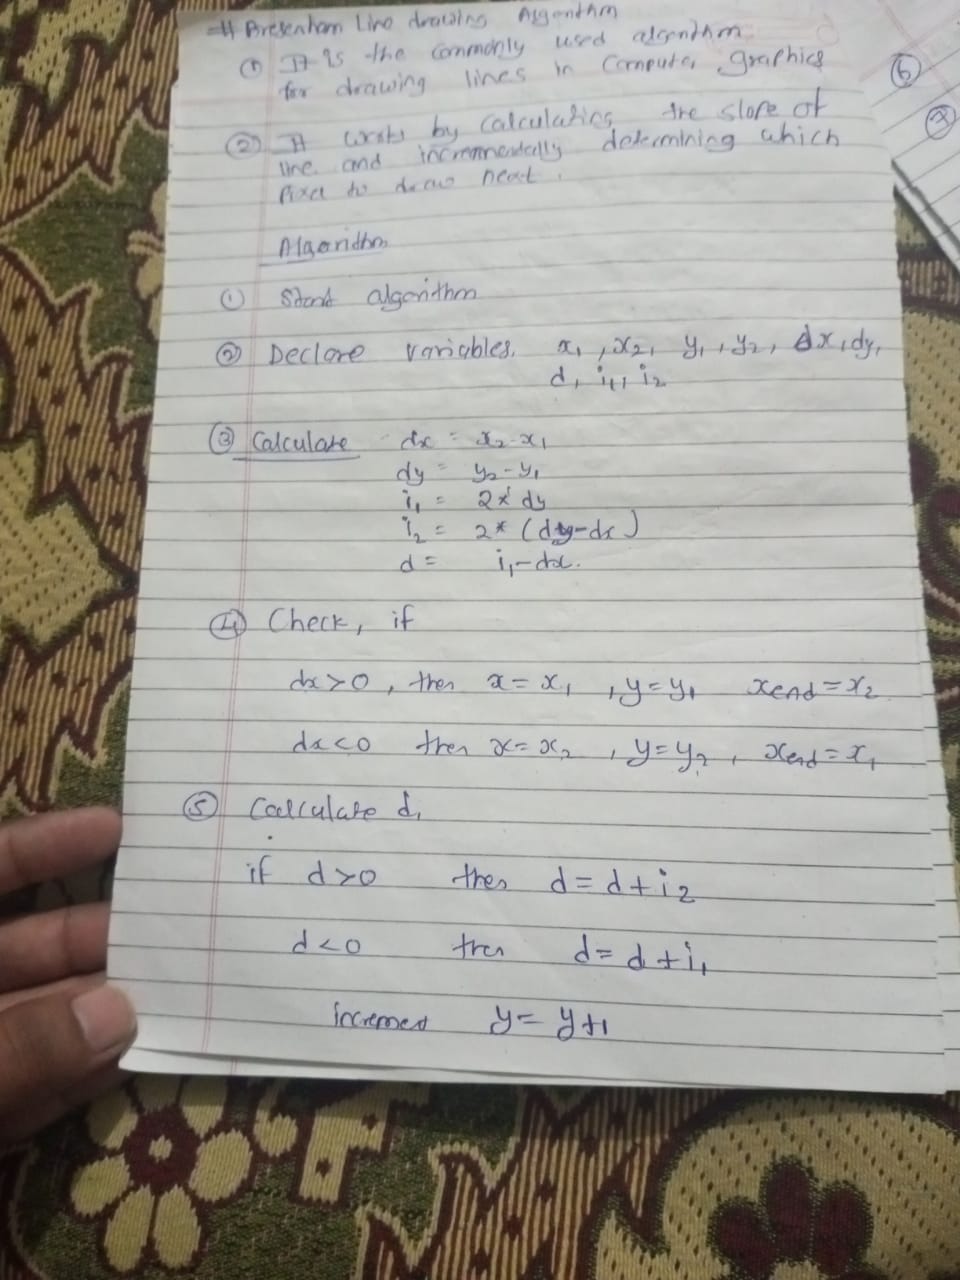 # Bresenham Line drawing Algorithm
① It is the commonly used algorithm
for drawing lines in Computer graphics
② It works by calculating the slope of
line and incrementally determining which
Pixel to draw next.
Algorithm
① Start algorithm
② Declare variables. x₁, x₂, y₁, y₂, dx, dy,
d, i₁, i₂
③ Calculate dx = x₂-x₁
dy = y₂-y₁
i₁ = 2* dy
i₂ = 2* (dy-dx)
d = i₁-dx.
④ Check, if
dx>0, then x = x₁, y=y₁ xend=x₂
dx<0 then x=x₂, y=y₂, xend=x₁
⑤ Calculate d,
if d>0 then d=d+i₂
d<0 then d=d+i₁
increment y=y+1
⑥
⑦